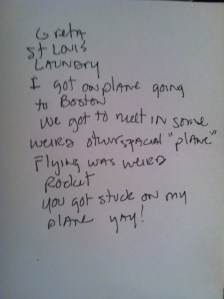 Greta
St Louis
Laundry
I got on plane going
to Boston
We got to meet in some
weird other spacial "plane"
Flying was weird
Rocket
you got stuck on my
plane yay!